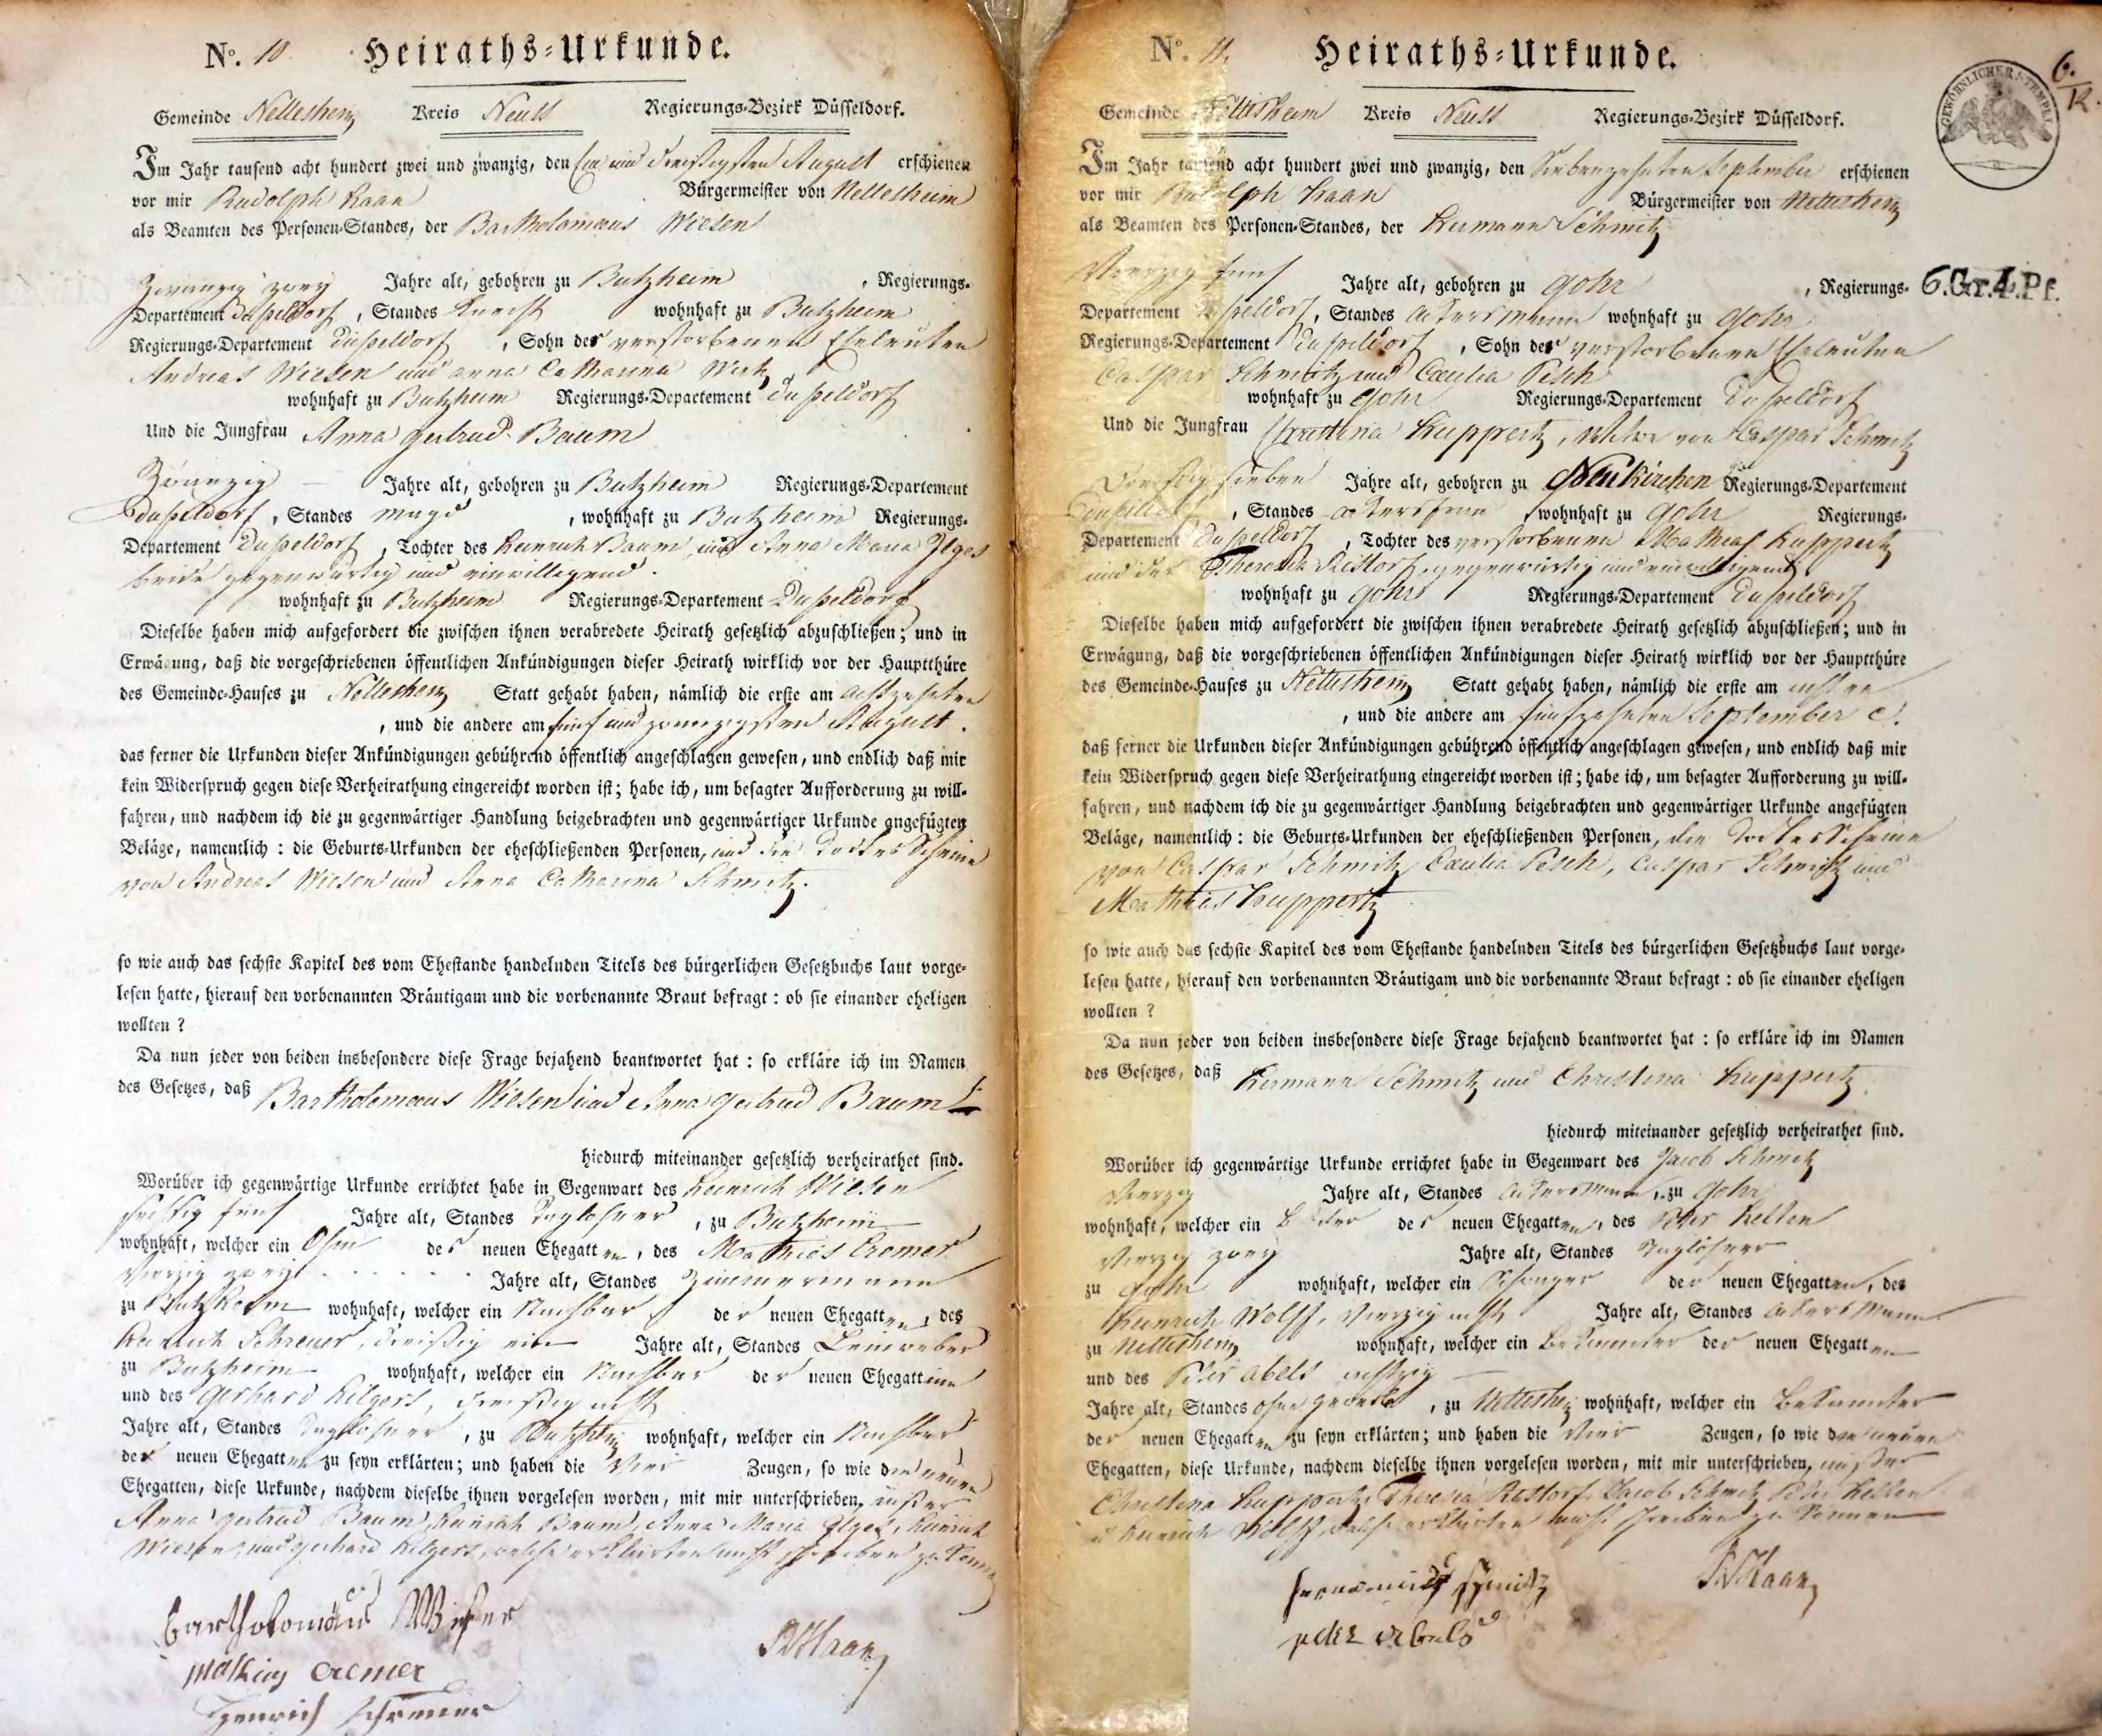 No. 10 Heiraths-Urkunde.
Gemeinde Nettesheim Kreis Neuss Regierungs-Bezirk Düsseldorf.
Im Jahr tausend acht hundert zwei und zwanzig, den Ein und dreißigsten August erschienen
vor mir Rudolph Haan Bürgermeister von Nettesheim
als Beamten des Personen-Standes, der Bartholomaeus Wiesen
Zwanzig zwey Jahre alt, gebohren zu Butzheim, Regierungs-
Departement Düsseldorf, Standes Knecht wohnhaft zu Butzheim
Regierungs-Departement Düsseldorf, Sohn der verstorbenen Eheleuten
Andreas Wiesen und Anna Catharina
wohnhaft zu Butzheim Regierungs-Departement Düsseldorf
Und die Jungfrau Anna Gertrud Baum
Zwanzig Jahre alt, gebohren zu Butzheim Regierungs-Departement
Düsseldorf, Standes Magd, wohnhaft zu Butzheim Regierungs-
Departement Düsseldorf, Tochter des Heinrich Baum und Anna Maria Ilges
beide gegenwärtig und einwilligend.
wohnhaft zu Butzheim Regierungs-Departement Düsseldorf
Dieselbe haben mich aufgefordert die zwischen ihnen verabredete Heirath gesetzlich abzuschließen; und in
Erwägung, daß die vorgeschriebenen öffentlichen Ankündigungen dieser Heirath wirklich vor der Hauptthüre
des Gemeinde-Hauses zu Nettesheim Statt gehabt haben, nämlich die erste am achtzehnten
, und die andere am fünf und zwanzigsten August.
das ferner die Urkunden dieser Ankündigungen gebührend öffentlich angeschlagen gewesen, und endlich daß mir
kein Widerspruch gegen diese Verheirathung eingereicht worden ist; habe ich, um besagter Aufforderung zu will-
fahren, und nachdem ich die zu gegenwärtiger Handlung beigebrachten und gegenwärtiger Urkunde angefügten
Beläge, namentlich: die Geburts-Urkunden der eheschließenden Personen, und die Todtesscheine
von Andreas Wiesen und Anna Catharina Schmitz.
so wie auch das sechste Kapitel des vom Ehestande handelnden Titels des bürgerlichen Gesetzbuchs laut vorge-
lesen hatte, hierauf den vorbenannten Bräutigam und die vorbenannte Braut befragt: ob sie einander eheligen
wollten?
Da nun jeder von beiden insbesondere diese Frage bejahend beantwortet hat: so erkläre ich im Namen
des Gesetzes, daß Bartholomaeus Wiesen und Anna Gertrud Baum
hiedurch miteinander gesetzlich verheirathet sind.
Worüber ich gegenwärtige Urkunde errichtet habe in Gegenwart des Heinrich Wiesen
sechszig fünf Jahre alt, Standes Taglöhner, zu Butzheim
wohnhaft, welcher ein Ohm der neuen Ehegatten, des Mathias Cremer
Vierzig zwey Jahre alt, Standes Zimmermann
zu Butzheim wohnhaft, welcher ein Nachbar der neuen Ehegatten, des
Heinrich Schreuer, dreißig ein Jahre alt, Standes Leinweber
zu Butzheim wohnhaft, welcher ein Nachbar der neuen Ehegattinn
und des Gerhard Hilgers, dreißig acht
Jahre alt, Standes Taglöhner, zu Butzheim wohnhaft, welcher ein Nachbar
der neuen Ehegatten zu seyn erklärten; und haben die Vier Zeugen, so wie die neuen
Ehegatten, diese Urkunde, nachdem dieselbe ihnen vorgelesen worden, mit mir unterschrieben, außer
Anna Gertrud Baum, Heinrich Baum, Anna Maria Ilges, Heinrich
Wiesen und Gerhard Hilgers, welche erklärten nicht schreiben zu können
Bartholomäus Wiesen
Mathias Cremer
RHaan
Henrich Schreuer
No. 11. Heiraths-Urkunde.
GEWÖHNLICHER STEMPEL
6.
Gemeinde Nettesheim Kreis Neuss Regierungs-Bezirk Düsseldorf.
Im Jahr tausend acht hundert zwei und zwanzig, den Siebenzehnten September erschienen
vor mir Rudolph Haan Bürgermeister von Nettesheim
als Beamten des Personen-Standes, der Hermann Schmitz
Vierzig fünf Jahre alt, gebohren zu Gohr, Regierungs-
6.Gr.4.Pf.
Departement Düsseldorf, Standes Ackersmann wohnhaft zu Gohr
Regierungs-Departement Düsseldorf, Sohn der verstorbenen Eheleuten
Caspar Schmitz und Cæcilia Pesch
wohnhaft zu Gohr Regierungs-Departement Düsseldorf
Und die Jungfrau Christina Kuppertz, Witwe von Caspar Schmitz
Dreißig sieben Jahre alt, gebohren zu Neukirchen Regierungs-Departement
Düsseldorf, Standes Ackersfrau, wohnhaft zu Gohr Regierungs-
Departement Düsseldorf, Tochter des verstorbenen Mathias Kuppertz
und der Theresia Ristorf, gegenwärtig und einwilligend.
wohnhaft zu Gohr Regierungs-Departement Düsseldorf
Dieselbe haben mich aufgefordert die zwischen ihnen verabredete Heirath gesetzlich abzuschließen; und in
Erwägung, daß die vorgeschriebenen öffentlichen Ankündigungen dieser Heirath wirklich vor der Hauptthüre
des Gemeinde-Hauses zu Nettesheim Statt gehabt haben, nämlich die erste am achten
, und die andere am fünfzehnten September c.
daß ferner die Urkunden dieser Ankündigungen gebührend öffentlich angeschlagen gewesen, und endlich daß mir
kein Widerspruch gegen diese Verheirathung eingereicht worden ist; habe ich, um besagter Aufforderung zu will-
fahren, und nachdem ich die zu gegenwärtiger Handlung beigebrachten und gegenwärtiger Urkunde angefügten
Beläge, namentlich: die Geburts-Urkunden der eheschließenden Personen, die Todtesscheine
von Caspar Schmitz, Cæcilia Pesch, Caspar Schmitz und
Mathias Kuppertz
so wie auch das sechste Kapitel des vom Ehestande handelnden Titels des bürgerlichen Gesetzbuchs laut vorge-
lesen hatte, hierauf den vorbenannten Bräutigam und die vorbenannte Braut befragt: ob sie einander eheligen
wollten?
Da nun jeder von beiden insbesondere diese Frage bejahend beantwortet hat: so erkläre ich im Namen
des Gesetzes, daß Hermann Schmitz und Christina Kuppertz
hiedurch miteinander gesetzlich verheirathet sind.
Worüber ich gegenwärtige Urkunde errichtet habe in Gegenwart des Jacob Schmitz
Vierzig Jahre alt, Standes Ackersmann, zu Gohr
wohnhaft, welcher ein Bruder der neuen Ehegatten, des Peter Kellen
Vierzig zwey Jahre alt, Standes Taglöhner
zu Gohr wohnhaft, welcher ein Schwager der neuen Ehegatten, des
Heinrich Wolff, Vierzig acht Jahre alt, Standes Ackersmann
zu Nettesheim wohnhaft, welcher ein Bekannter der neuen Ehegatten
und des Peter Abels achtzig
Jahre alt, Standes ohne Gewerb, zu Nettesheim wohnhaft, welcher ein Bekannter
der neuen Ehegatten zu seyn erklärten; und haben die Vier Zeugen, so wie die neuen
Ehegatten, diese Urkunde, nachdem dieselbe ihnen vorgelesen worden, mit mir unterschrieben, außer
Christina Kuppertz, Theresia Ristorf, Jacob Schmitz, Peter Kellen
u Heinrich Wolff, welche erklärten nicht schreiben zu können
RHaan
schmitz
peter abels